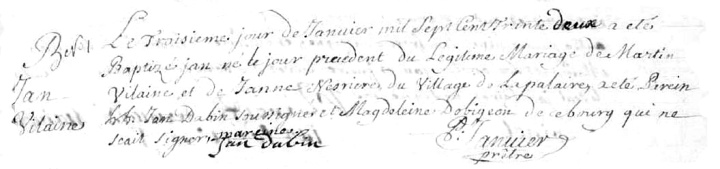 Bap.
Jan
Vilaine
Le Troisieme jour de Janvier mil Sept Cent Trente deux a etés
Baptizé jan né le jour precedent du Legitime Mariage de Martin
Vilaine et de Janne du Village de Lapalaire, a eté Parein
Jan Dabin et Magdeleine Dobigeon de ce bourg qui ne
scait signer pareines
jan dabin
P. Janvier
prêtre